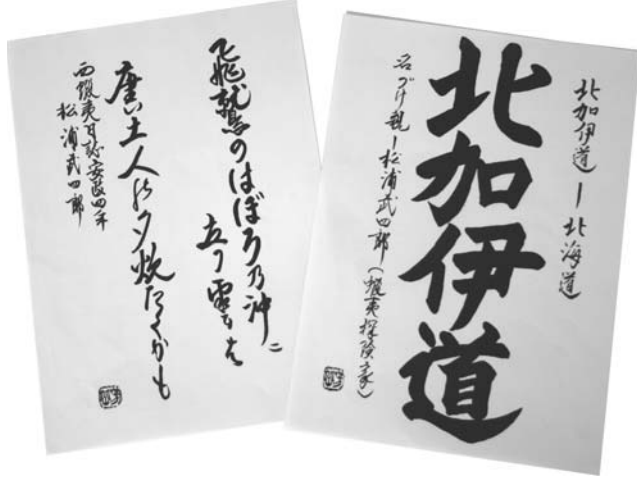 北加伊道ー北海道
北加伊道
名づけ親ー松浦武四郎(蝦夷探険家)
飛鷲のはぼろ乃沖ニ
立つ雲
唐土人の夕炊たくかも
西蝦夷日誌安政四年
松浦武四郎